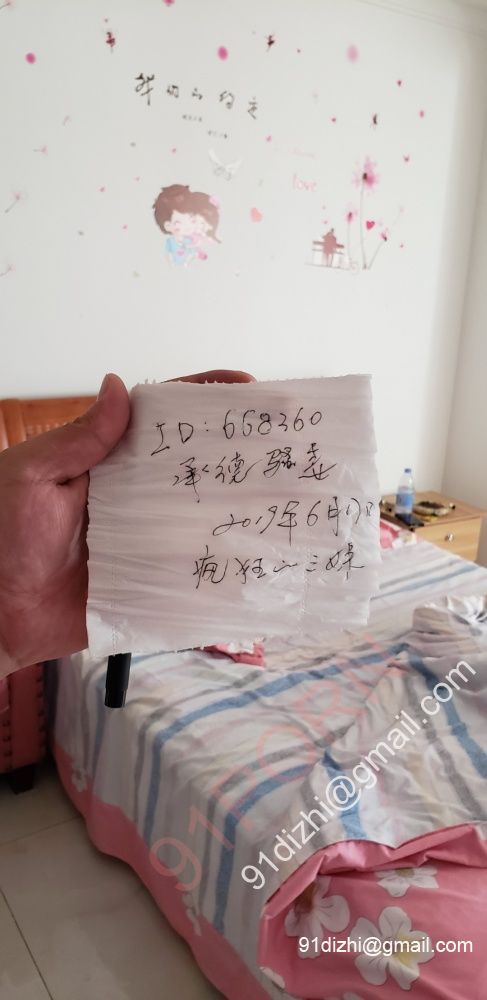 我们的约定
love
ID:668360
承德骚妻
2019年6月17日
疯狂小三妹
91PORN
91dizhi@gmail.com
91dizhi@gmail.com